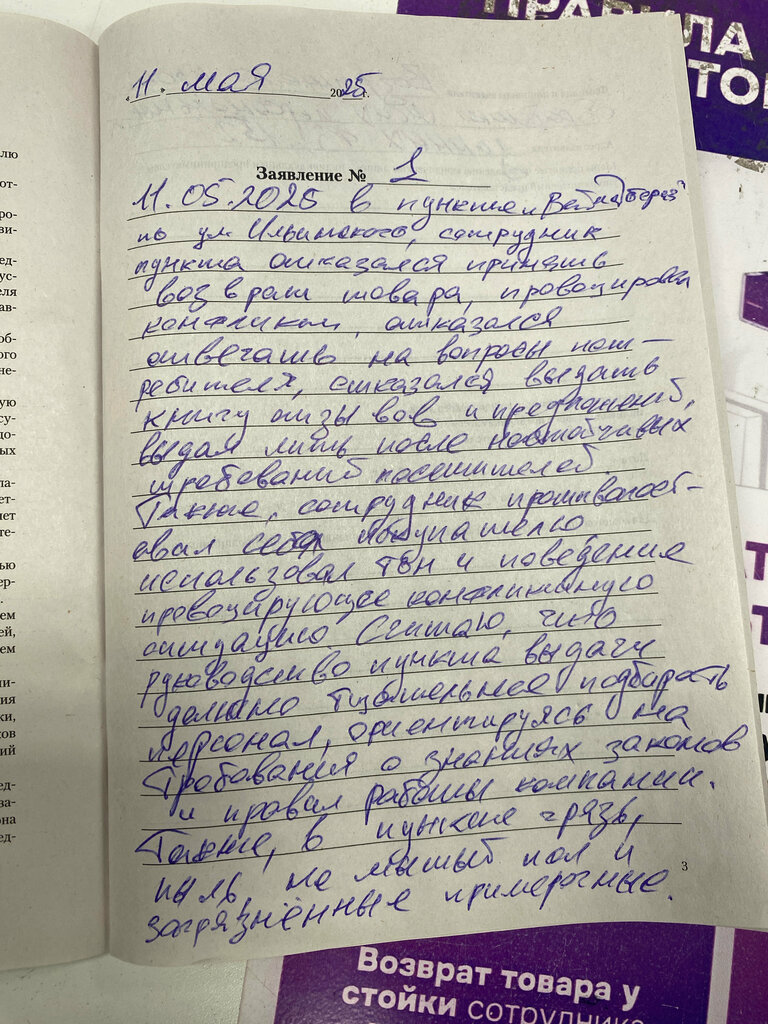 ПРАВИЛА
„11" мая 2025 г.
Заявление № 1
11.05.2025 в пункте „Вайлдберез"
по ул Ильинского, сотрудник
пункта отказался принять
возврат товара, провоцировал
конфликт, отказался
отвечать на вопросы пот-
ребителя, отказался выдать
книгу отзывов и предложений,
выдал лишь после настойчивых
требований посетителей.
Также, сотрудник противопост-
авил себя покупателю,
использовал тон и поведение
провоцирующее конфликтную
ситуацию. Считаю, что
руководство пункта выдачи
должно тщательнее подбирать
персонал, ориентируясь на
требования о знаниях законов
и правил работы компании.
Также, в пункте грязь,
пыль, не мытый пол и
загрязнённые примерочные.
3
Возврат товара у
стойки сотрудника